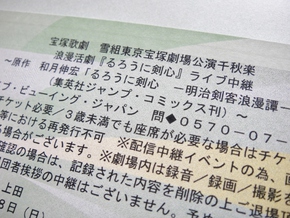 宝塚歌劇 雪組東京宝塚劇場公演千秋楽
浪漫活劇『るろうに剣心』ライブ中継
～原作 和月伸宏「るろうに剣心 ―明治剣客浪漫譚―
（集英社ジャンプ・コミックス刊）～
ブ・ビューイング・ジャパン 問◆0570-07-
チケット必要／3歳未満でも座席が必要な場合はチケ
等における再発行不可 ※配信中継イベントの為、画
場合がございます。※劇場内は録音／録画／撮影を
確認の場合は、記録された内容を削除の上ご退
回者挨拶の中継はございません。予
上田
8日（日）